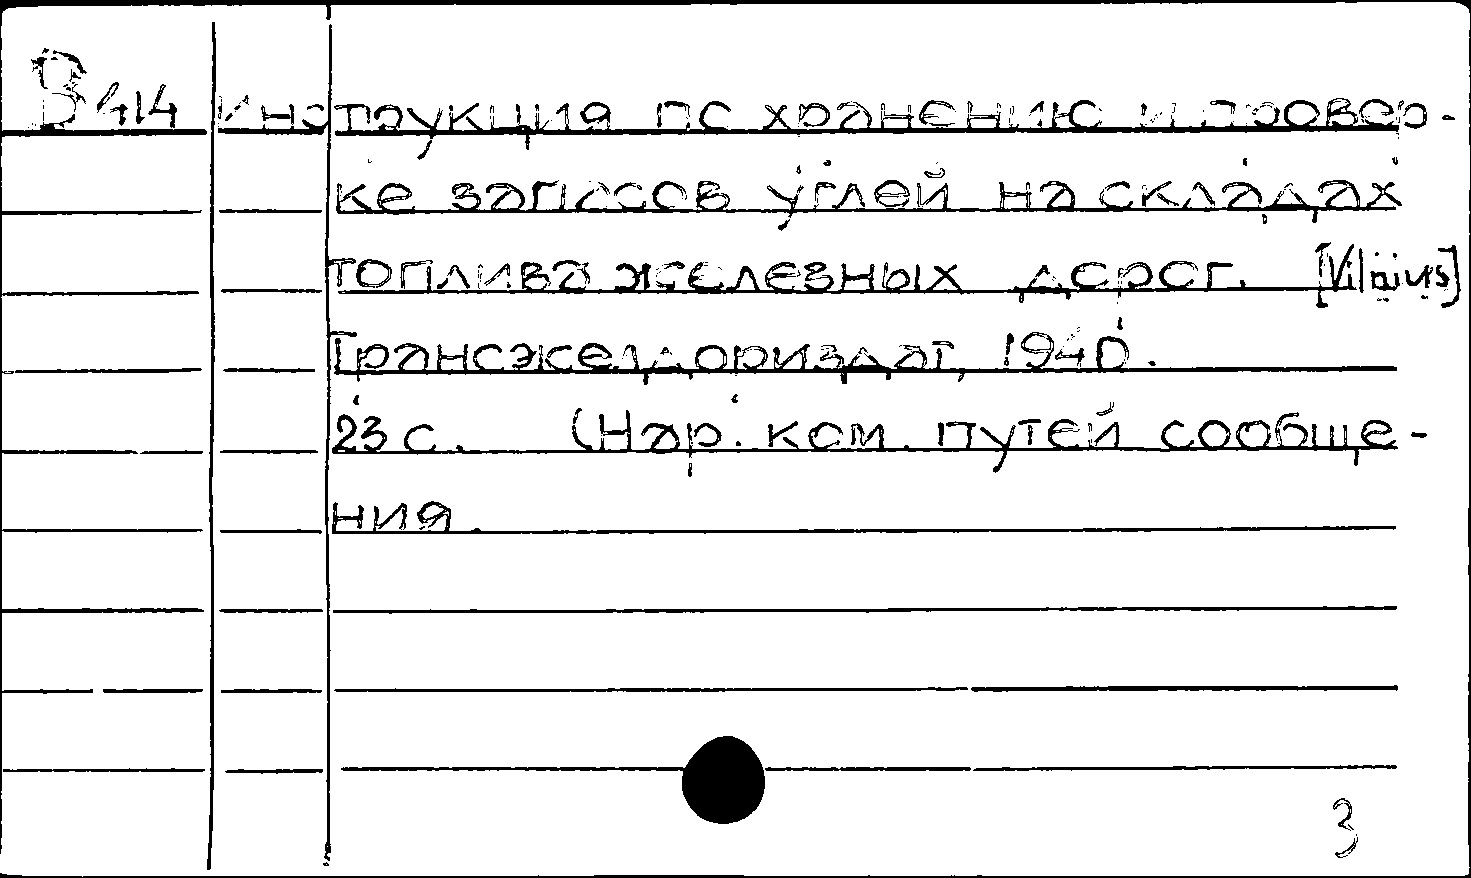 B 414 Инструкция по хранению и провер-
ке запасов углей на складах
топлива железных дорог. [Vilnius]
Трансжелдориздат, 1940.
23 с. (Нар. ком. путей сообще-
ния.
3